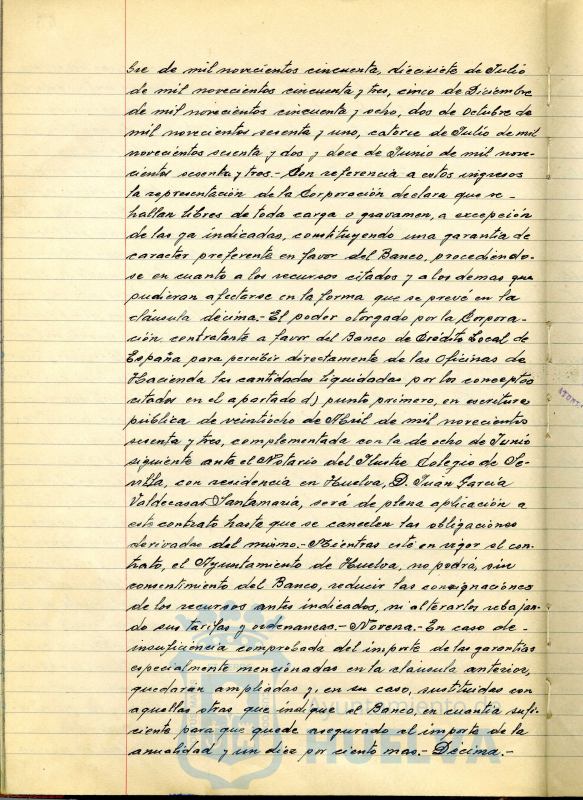 bre de mil novecientos cincuenta, diecisiete de Julio
de mil novecientos cincuenta y tres, cinco de Diciembre
de mil novecientos cincuenta y ocho, dos de Octubre de
mil novecientos sesenta y uno, catorce de Julio de mil
novecientos sesenta y dos y doce de Junio de mil nove-
cientos sesenta y tres.- Con referencia a estos ingresos
la representación de la Corporación declara que se
hallan libres de toda carga o gravamen, a excepción
de las ya indicadas, constituyendo una garantía de
caracter preferente en favor del Banco, procediendo-
se en cuanto a los recursos citados y a los demas que
pudieran afectarse en la forma que se prevé en la
cláusula décima.- El poder otorgado por la Corpora-
ción contratante a favor del Banco de Crédito Local de
España para percibir directamente de las Oficinas de
Hacienda las cantidades liquidadas por los conceptos
citados en el apartado d) punto primero, en escritura
pública de veintiocho de Abril de mil novecientos
sesenta y tres, complementada con la de ocho de Junio
siguiente ante el Notario del Ilustre Colegio de Se-
villa, con residencia en Huelva, D. Juán García
Valdecasas Santamaria, será de plena aplicación a
este contrato hasta que se cancelen las obligaciones
derivadas del mismo.- Mientras esté en vigor el con-
trato, el Ayuntamiento de Huelva, no podrá, sin
consentimiento del Banco, reducir las consignaciones
de los recursos antes indicados, ni alterarlos rebajan-
do sus tarifas y ordenanzas.- Novena.- En caso de
insuficiencia comprobada del importe de las garantías
especialmente mencionadas en la cláusula anterior,
quedarán ampliadas y, en su caso, sustituidas con
aquellas otras que indique el Banco, en cuantía sufi-
ciente para que quede asegurado el importe de la
anualidad y un diez por ciento mas.- Décima.-
Ayuntamiento de
HUELVA